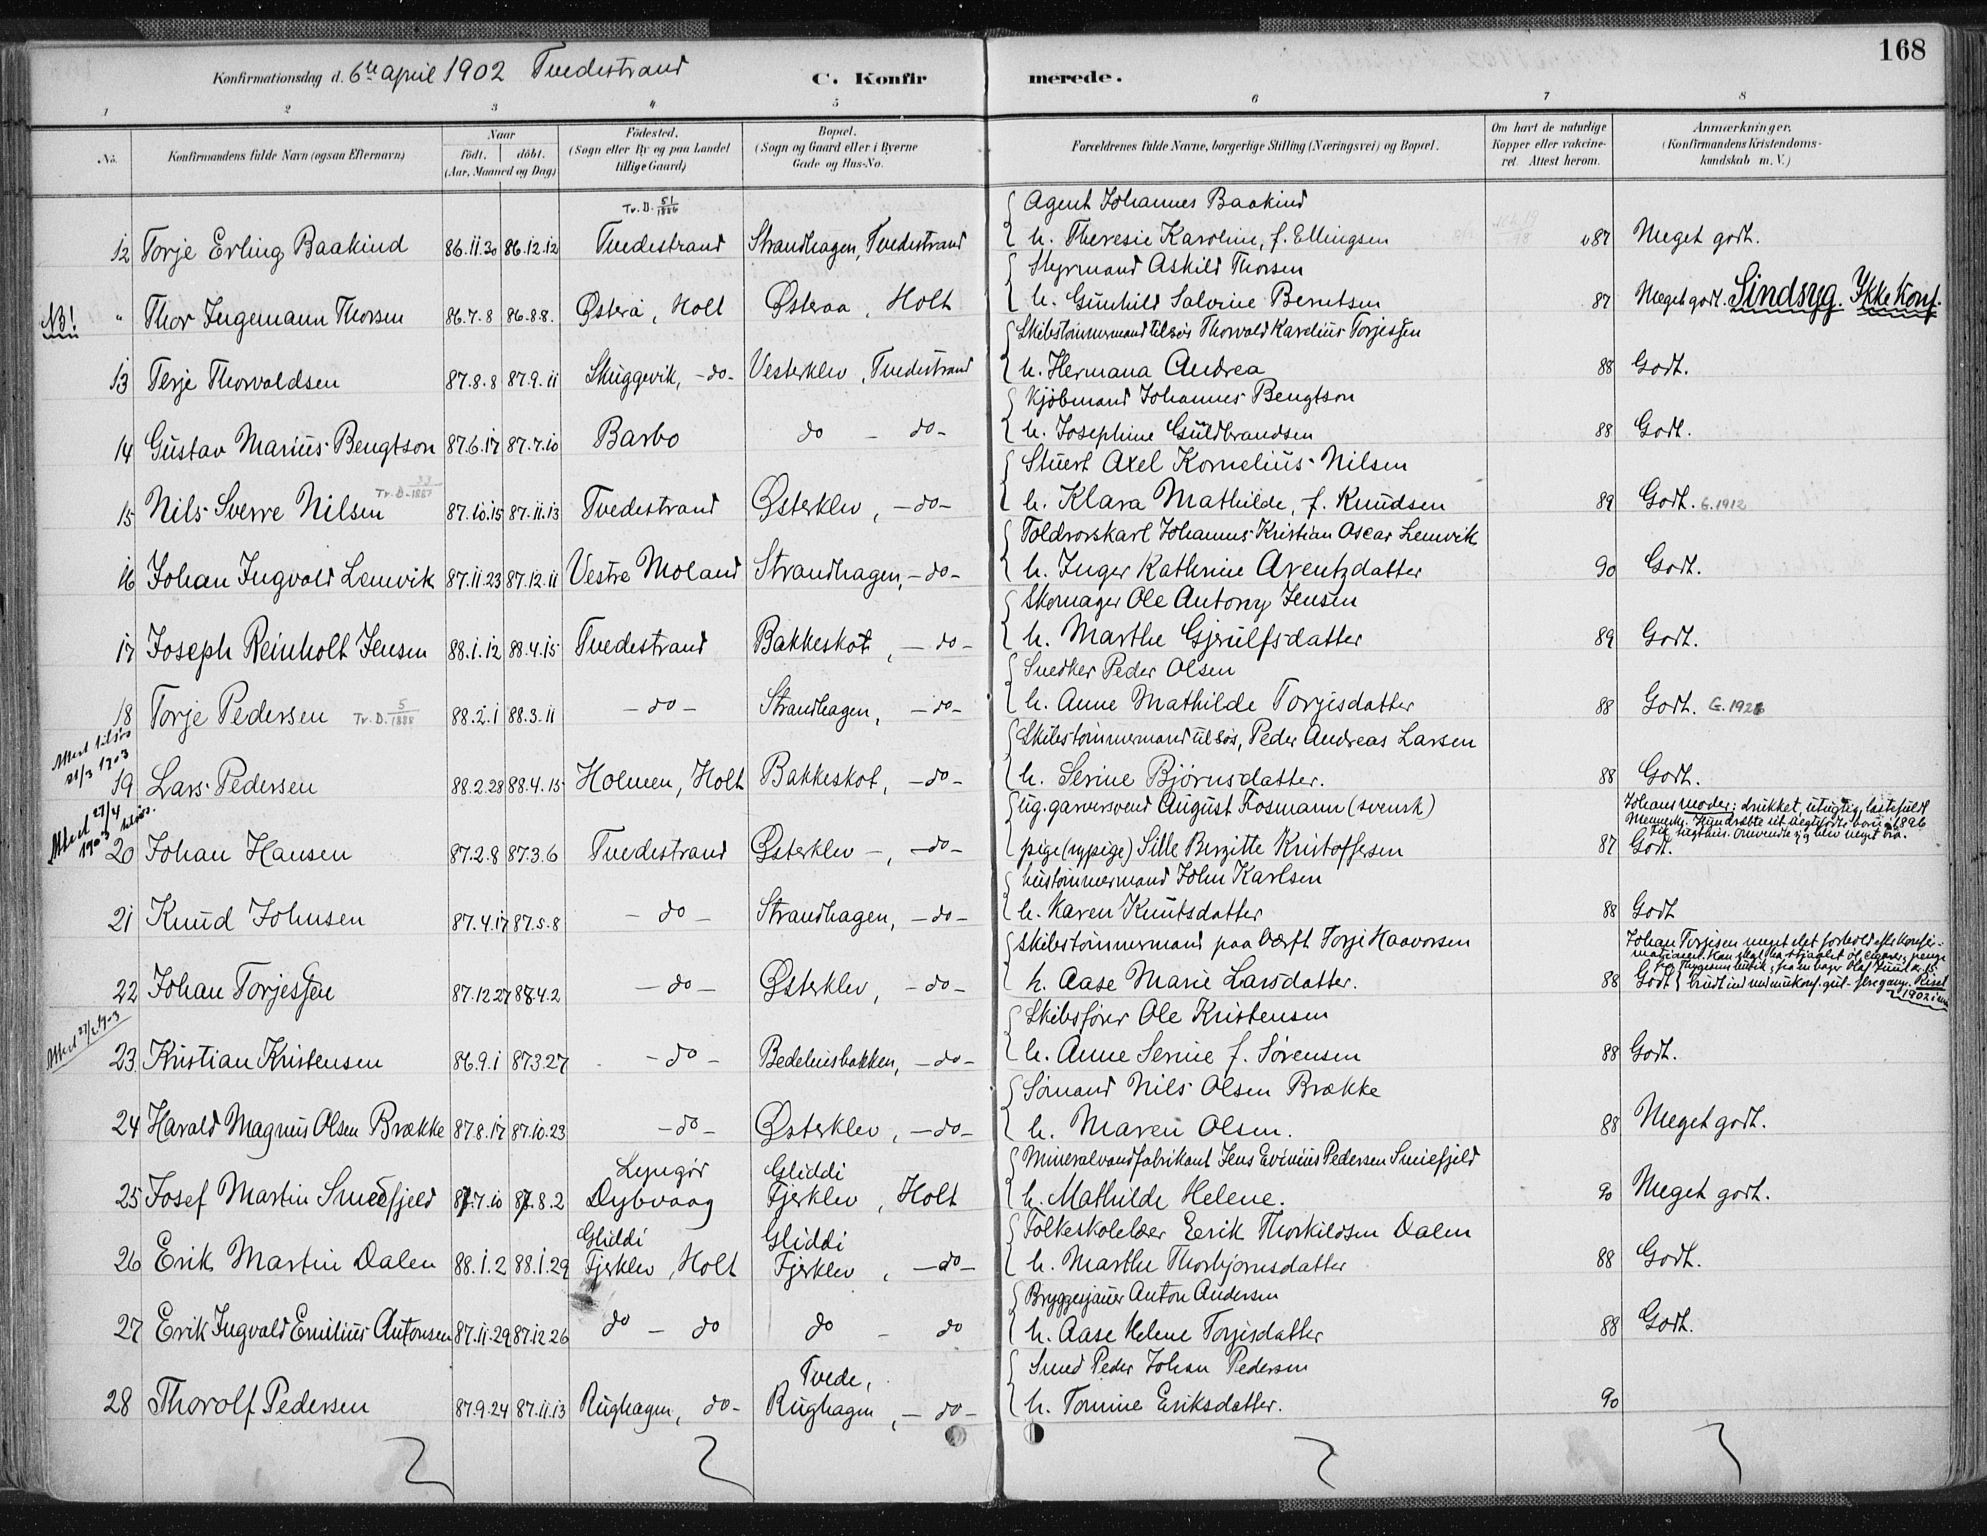 168
Konfirmationsdag d. 6te april 1902 Tvedestrand C. Konfir merede.
1 2 3 4 5 6 7 8
No. Konfirmandens fulde Navn (ogsaa Efternavn) Naar födt. döbt. (Aar, Maaned og Dag) Födested. (Sogn eller By og paa Landet tillige Gaard) Bopæl. (Sogn og Gaard eller i Byerne Gade og Hus-No. Forældrenes fulde Navne, borgerlige Stilling (Næringsvei) og Bopæl. Om havt de naturlige Kopper eller vaccineret. Attest herom. Anmærkninger. (Konfirmandens Kristendomskundskab m. V.)
Tv. D. 51/1886 Agent Johannes Baakind
12 Torje Erling Baakind 86.11.30 86.12.12 Tvedestrand Strandhagen, Tvedestrand h. Theresie Karoline, f. Ellingsen 87 Meget godt.
Styrmand Askild Thorsen
NB! " Thor Ingemann Thorsen 86.7.8 86.8.8. Østerå, Holt Østeraa, Holt h. Gunhild Salvine Berntsen 87 Meget godt. Sindsyg. Ikke konf.
Skibstømmermand tilsøs Thorvald Kardius Torjessen
13 Terje Thorvaldsen 87.8.8 87.9.11 Skuggevik, -do- Vesterklev, Tvedestrand h. Hermana Andrea 88 Godt.
Kjøbmand Johannes Bengtson
14 Gustav Marius Bengtson 87.6.17 87.7.10 Barbo do - do- h. Josephine Guldbrandsen 88 Godt.
Stuert Axel Kornelius Nilsen
15 Nils Sverre Nilsen Tv. D. 33/1887 87.10.15 87.11.13 Tvedestrand Østerklev, -do- h. Klara Mathilde, f. Knudsen 89 Godt. G. 1912
Toldrorskarl Johannes Kristian Oscar Lemvik
16 Johan Ingvald Lemvik 87.11.23 87.12.11 Vestre Moland Strandhagen, -do- h. Inger Kathrine Arentzdatter 90 Godt.
Skomager Ole Antony Jensen
17 Joseph Reinholt Jensen 88.1.12 88.4.15 Tvedestrand Bakkeskot, -do- h. Marthe Gjerulfsdatter 89 Godt.
Snedker Peder Olsen
18 Torje Pedersen Tv. D. 5/1888 88.2.1 88.3.11 -do- Strandhagen, -do- h. Anne Mathilde Torjisdatter 88 Godt. G. 1926
Skibstømmermand tilsøs, Peder Andreas Larsen
Attest tilsøs 21/3 1903
19 Lars Pedersen 88.2.28 88.4.15 Holmen, Holt Bakkeskot, -do- h. Serine Bjørnsdatter. 88 Godt.
ug. garversvend August Fosmann (svensk) Johans moder: drukket, utugtig, lastefuldt
Attest 27/4 1903 tilsøs.
20 Johan Hansen 87.2.8 87.3.6 Tvedestrand Østerklev -, -do- pige (sypige) Sille Birgitte Kristoffersen 87 Godt.
hustømmermand John Karlsen
21 Knud Johnsen 87.4.17 87.5.8 -do- Strandhagen, -do- h. Karen Knutsdatter 88 Godt
Skibstømmermand paa Værft Torje Haavorsen Johan Torjisen meget slet forhold efter konfirmationen.
22 Johan Torjessen 87.12.27 88.4.2 -do- Østerklev, -do- h. Aase Marie Larsdatter. 88 Godt
Skibsfører Ole Kristensen
23 Kristian Kristensen 86.9.1 87.3.27 -do- Bedehusbakken, -do- h. Anne Serine f. Sørensen 88 Godt.
Sømand Nils Olsen Brække
24 Harald Magnus Olsen Brække 87.8.17 87.10.23 -do- Østerklev, -do- h. Maren Olsen. 88 Meget godt.
Lyngør Gliddi Mineralvandfabrikant Jens Evinius Pedersen Smiefjeld
25 Josef Martin Smeefjeld 87.7.10 87.8.2 Dybvaag Fjerklev, Holt h. Mathilde Helene. 90 Meget godt.
Gliddi Gliddi Folkeskolelær Eerik Thorkildsen Dalen
26 Erik Martin Dalen 88.1.2 88.1.29 Fjerklev, Holt Fjerklev, -do- h. Marthe Thorbjørnsdatter 88 Godt.
Bryggesjauer Anton Andersen
27 Erik Ingvald Emilius Antonsen 87.11.29 87.12.26 do - do do - do h. Aase Helene Torjisdatter 88 Godt.
Tvede, Smed Peder Johan Pedersen
28 Thorolf Pedersen 87.9.24 87.11.13 Rughagen, do- Rughagen, -do- h. Tomine Eriksdatter. 90